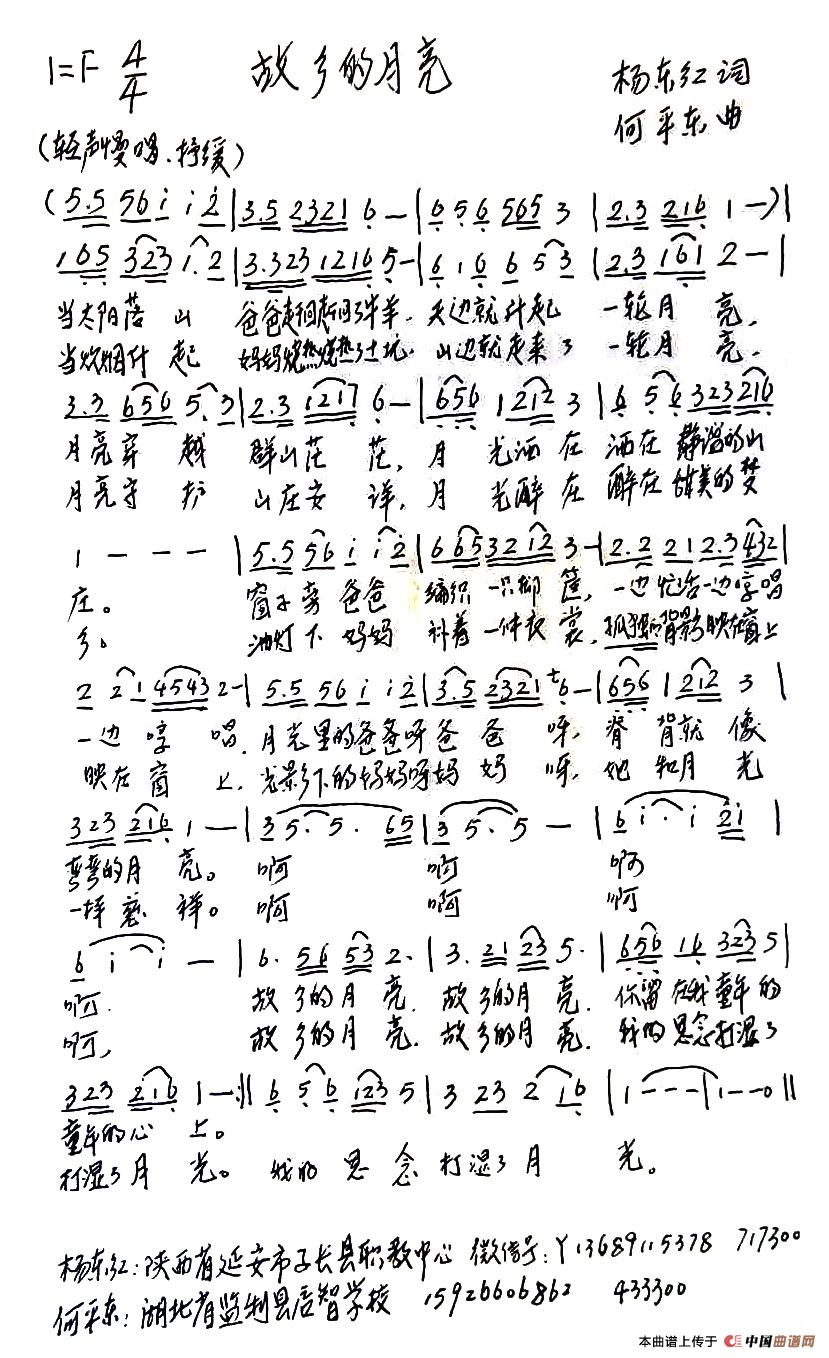 1=F 4/4 故乡的月亮 杨东红词
何平东曲
(轻声慢唱、抒缓)
(5.5 56i i i2|3.5 2321 6 -|6 5 6 565 3|2.3 216 1 -)|
165 323 1.2|3.323 1216 5-|6 1 6 6 5 3|2.3 161 2 -|
当太阳落山 爸爸赶回赶回了牛羊,天边就升起 一轮月亮,
当炊烟升起 妈妈烧热烧热了土坑,山边就走来了 一轮月亮.
3.3 656 5.3|2.3 1217 6 -|656 1 212 3|6 5 6 323 216
月亮穿越 群山茫茫,月光洒在 洒在静谧的山
月亮守护 山庄安详,月光醉在 醉在甜美的梦
1 - - -|5.5 56 i i2|6 665 32 12 3-|2.2 21 2.3 432|
庄。 窗子旁爸爸 编织一只脚筐,一边忙活一边哼唱
乡。 油灯下妈妈 补着一件衣裳,背影映在窗上
2 21 4543 2-|5.5 56 i i2|3.5 2321 6-|656 1 212 3|
一边哼唱,月亮里的爸爸呀爸爸呀,脊背就像
映在窗上,光影下的妈妈呀妈妈呀,她和月光
323 216 1 -|3 5. 5. 65|3 5. 5 -|6 i. i 2i|
弯弯的月亮。啊 啊 啊
一样慈祥。啊 啊 啊
6 i i -|6. 56 53 2.|3. 21 23 5.|656 16 323 5|
啊. 故乡的月亮.故乡的月亮.你留在我童年的
啊, 故乡的月亮.故乡的月亮.我的思念打湿了
323 216 1 -:||6 5 6 123 5|3 23 2 16|1 - - -|1 - - 0||
童年的心上。
打湿了月光。我的思念打湿了月光。
杨东红:陕西省延安市子长县职教中心 微信号:Y13689115378 717300
何平东:湖北省监利县启智学校 15926606862 433300
本曲谱上传于 中国曲谱网